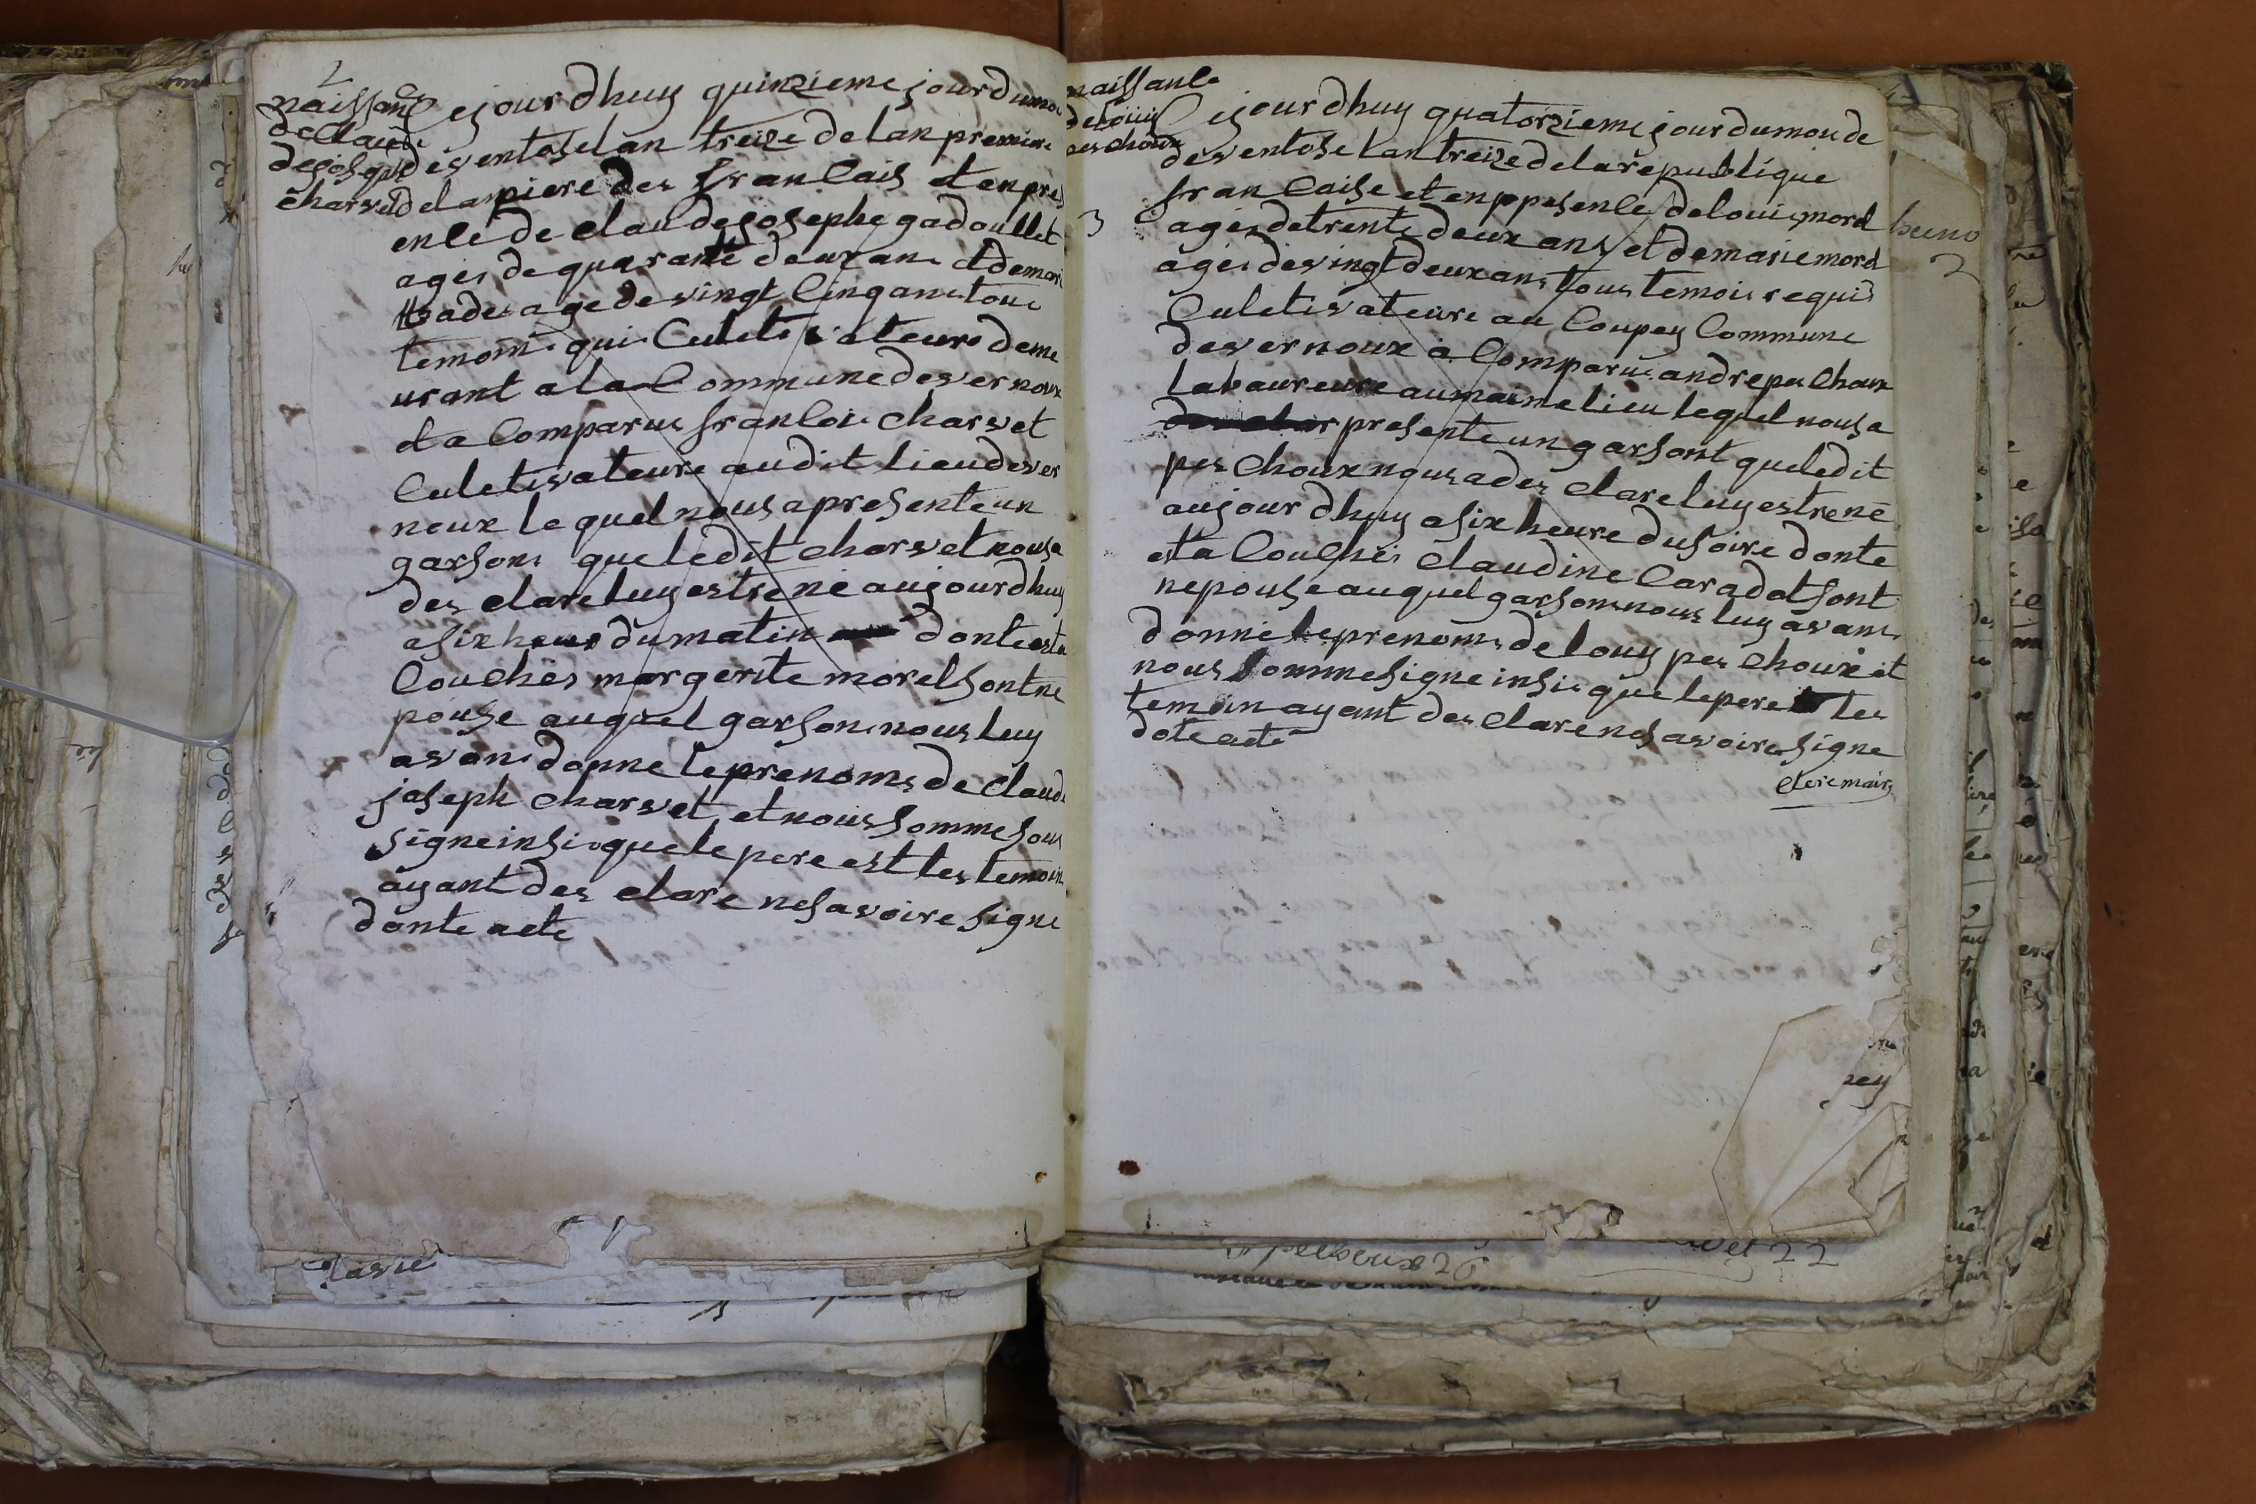 2
naissance
de Claude
de josephe
charvet
Cejourdhuy quinzieme jour dumoi
de ventose lan treize de lan premiere
de lanpiere des francais et enpres
ence de claude josephe gadoullet
ages de quarante deux ans et demari
ttrades age de vingt cinq ans tous
temoins qui Culetivateurs deme
urant a la Commune desvernoux
et a Comparus francois charvet
Culetivateure audit lieu desver
noux le quel nous apresente un
garsons queledit charvet nousa
des clare luy estre né aujourdhuy
asix heurs du matin donteesta
Couches margerite morel sont ne
pouse auquel garsons nous luy
avons donne leprenoms de claude
joseph charvet et nous somme sous
signe insi que le pere est les temoins
ayant des clare nesavoire signe
donte acte
naissance
de louis
peschoux
3
Cejourdhuy quatorzieme jour dumou de
de ventose lan treize de la republique
francaise et enppesence de louis mord
ages de trente deux ans et demarie mord
ages de vingt deux ans tous temois requis
Culetivateure au Coupey Commune
desvernoux a Comparus andre peschoux
Laboureure aumaime lieu lequel nousa
presente un garsont queledit
peschoux nous a des clare luy estre né
aujourdhuy asix heure dusoire donte
esta Couches claudine Caradot sont
nepouse auquel garsoms nous luy avans
donné leprenoms de louy peschoux et
nous somme signe insi que lepere les
temoin ayant des clare nesavoire signe
dote acte
clere maire
2
rey
lavie
vet 22
26